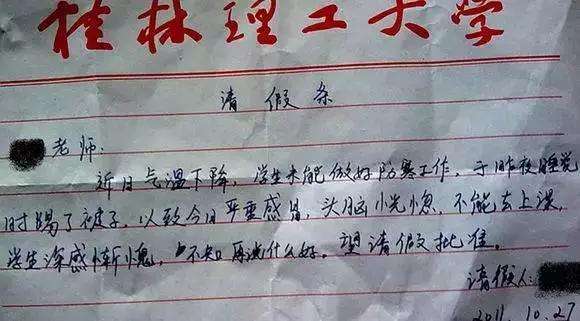 桂林理工大学
请假条
老师:
近日气温下降,学生未能做好防寒工作,于昨夜睡觉
时踢了被子,以致今日严重感冒,头脑恍惚,不能去上课,
学生深感惭愧,不知再说什么好。望请假批准。
请假人:
2011.10.27